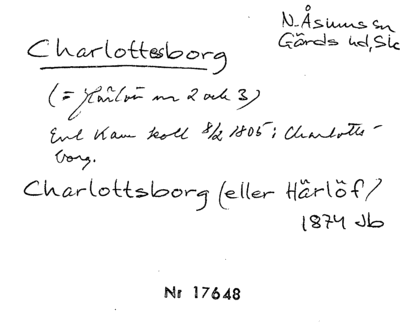 N. Åsum sn
Gärds hd, Sk
Charlottesborg
(= Härlöv nr 2 och 3)
Enl Kam koll 8/2 1805 i Charlotts-
borg.
Charlottsborg (eller Härlöf)
1874 Jb
Nr 17648